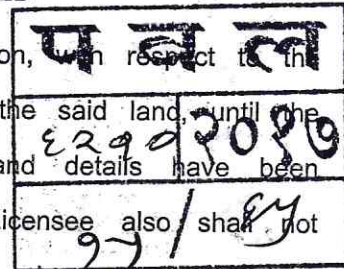 on, with respect to the
प व ल
the said land, until the
२०१७
and details have been
icensee also shall not